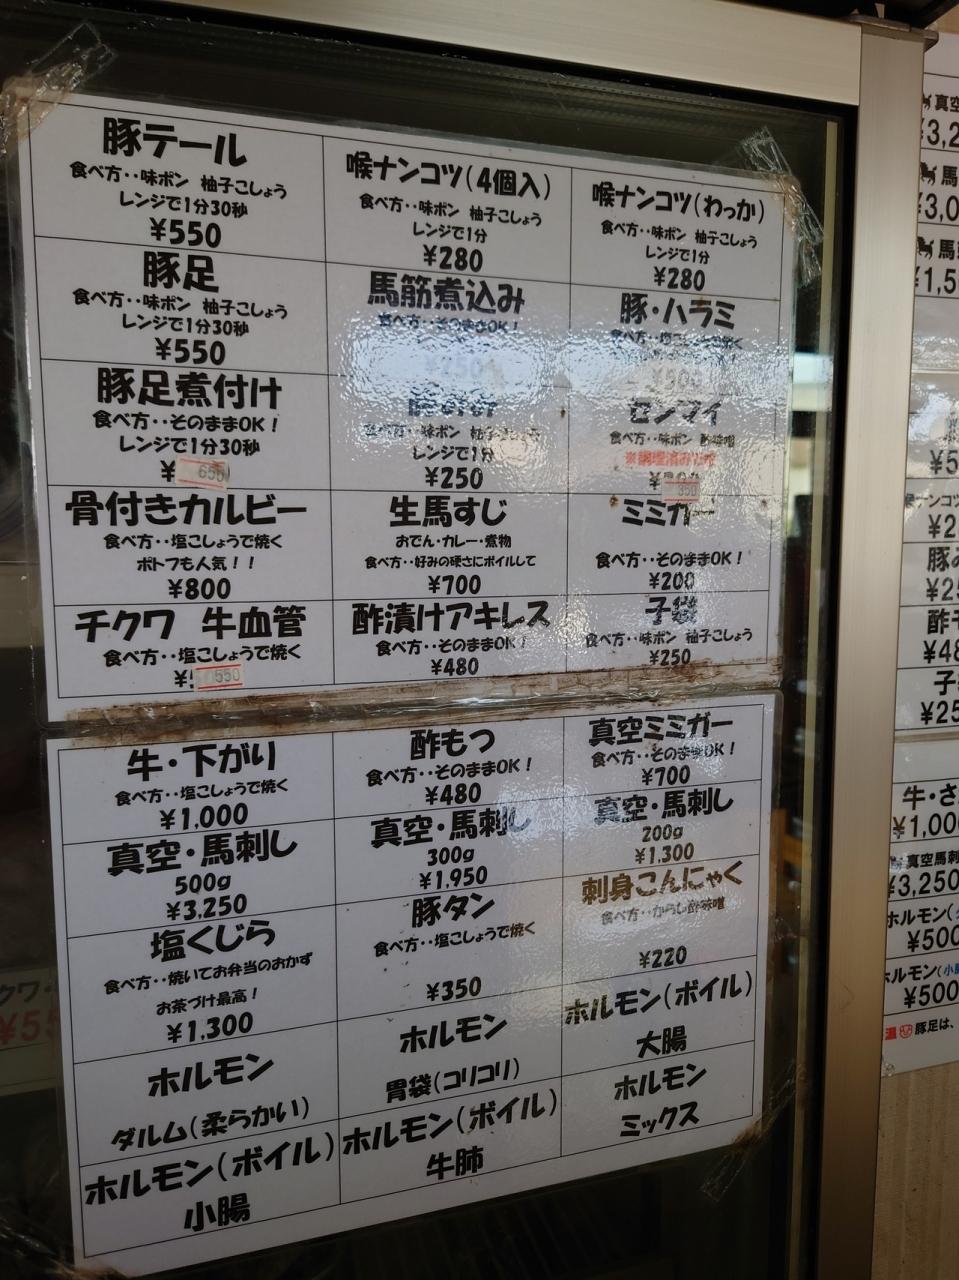 豚テール
食べ方‥味ポン 柚子こしょう
レンジで1分30秒
¥550
喉ナンコツ(4個入)
食べ方‥味ポン 柚子こしょう
レンジで1分
¥280
喉ナンコツ(わっか)
食べ方‥味ポン 柚子こしょう
レンジで1分
¥280
豚足
食べ方‥味ポン 柚子こしょう
レンジで1分30秒
¥550
馬筋煮込み
食べ方‥そのままOK!
¥250
豚・ハラミ
食べ方‥塩こしょうで焼く
豚足煮付け
食べ方‥そのままOK!
レンジで1分30秒
¥650
食べ方‥味ポン 柚子こしょう
レンジで1分
¥250
センマイ
食べ方‥味ポン 酢味噌
¥350
骨付きカルビー
食べ方‥塩こしょうで焼く
ポトフも人気!!
¥800
生馬すじ
おでん・カレー・煮物
食べ方‥好みの硬さにボイルして
¥700
ミミガー
食べ方‥そのままOK!
¥200
チクワ 牛血管
食べ方‥塩こしょうで焼く
¥550
酢漬けアキレス
食べ方‥そのままOK!
¥480
子袋
食べ方‥味ポン 柚子こしょう
¥250
牛・下がり
食べ方‥塩こしょうで焼く
¥1,000
酢もつ
食べ方‥そのままOK!
¥480
真空ミミガー
食べ方‥そのままOK!
¥700
真空・馬刺し
500g
¥3,250
真空・馬刺し
300g
¥1,950
真空・馬刺し
200g
¥1,300
塩くじら
食べ方‥焼いてお弁当のおかず
お茶づけ最高!
¥1,300
豚タン
食べ方‥塩こしょうで焼く
¥350
刺身こんにゃく
食べ方‥からし酢味噌
¥220
ホルモン
ダルム(柔らかい)
ホルモン
胃袋(コリコリ)
ホルモン(ボイル)
大腸
ホルモン(ボイル)
小腸
ホルモン(ボイル)
牛肺
ホルモン
ミックス